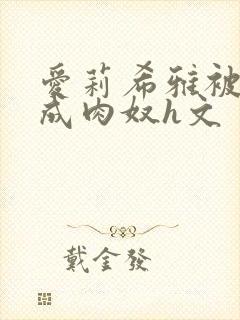 愛莉希雅被
成肉奴h文
戴金發